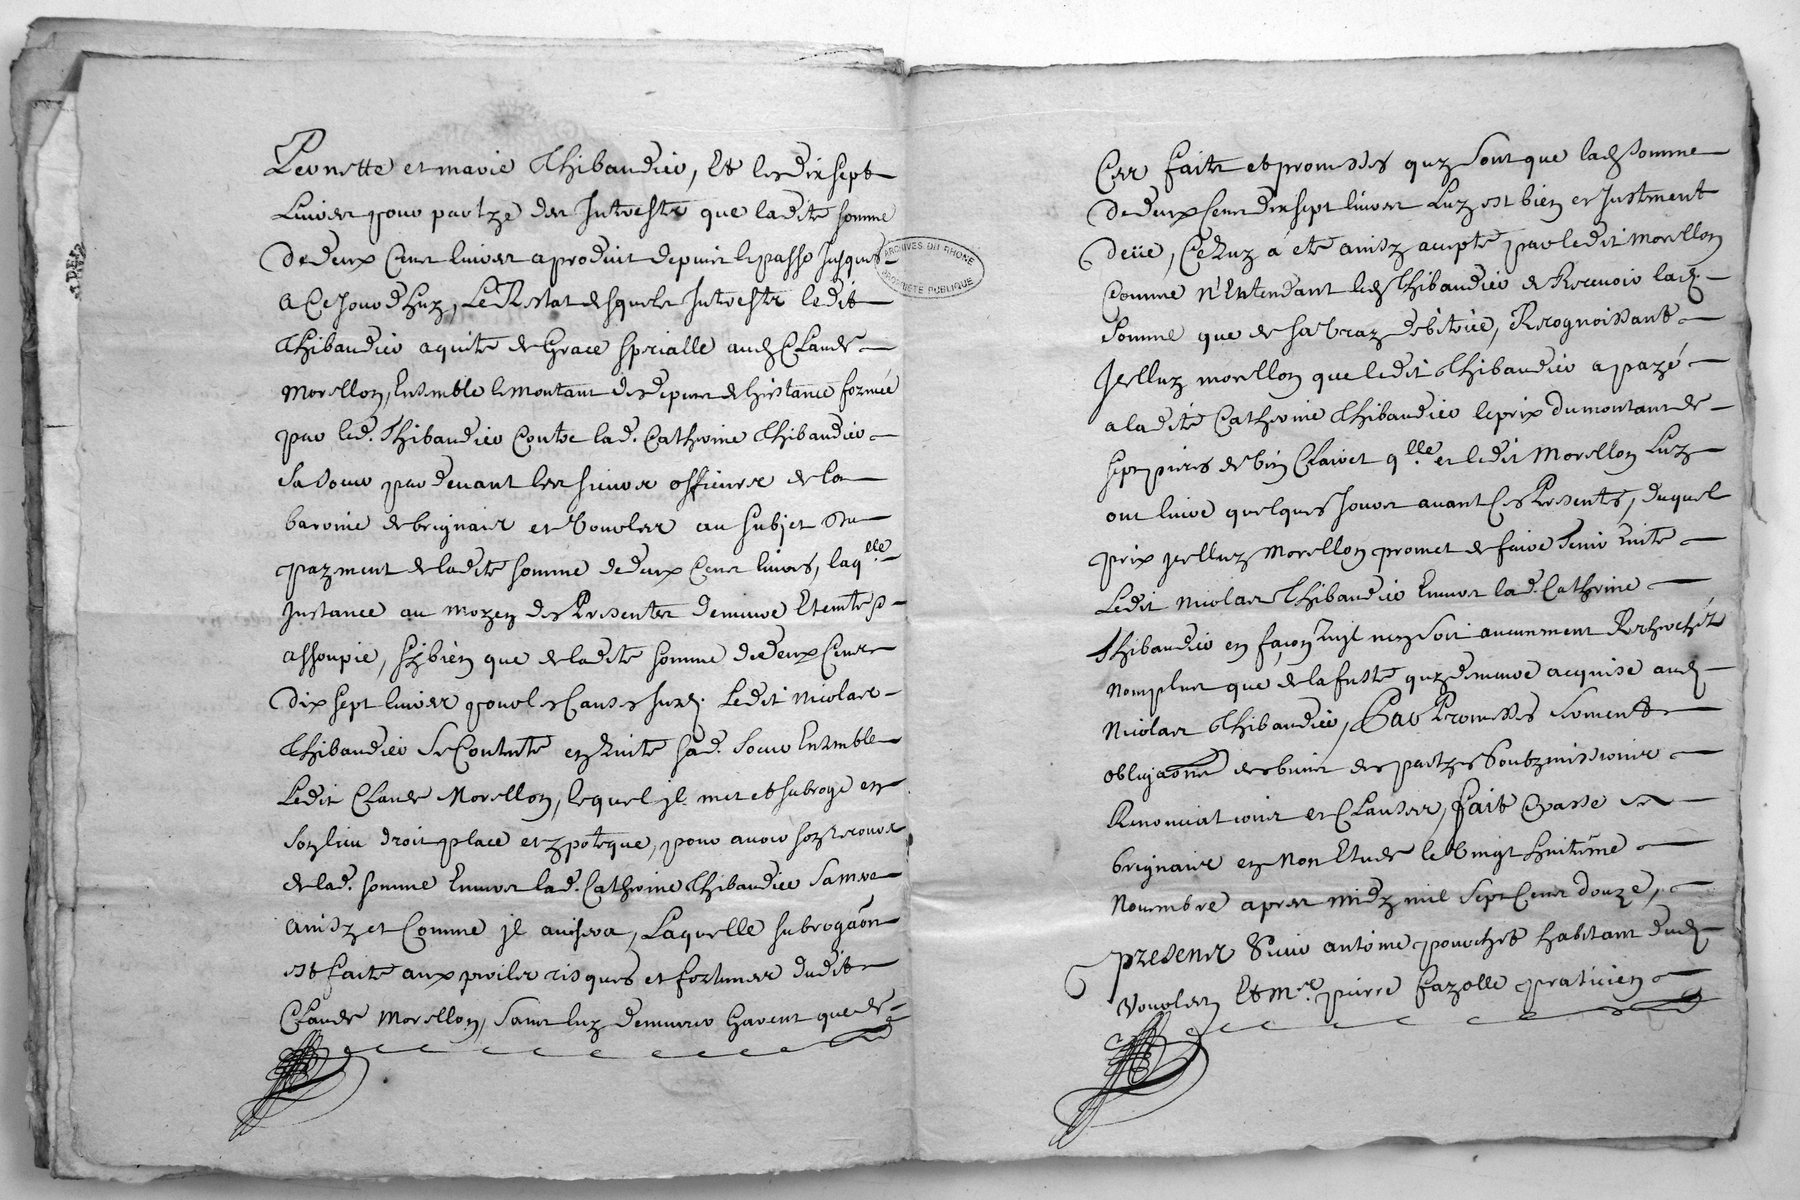 Pernette et marie Thibaudier, Et les dix sept
Livres pour partye des Interestz que ladite somme
de deux Cens livres a produit depuis le passé Jusques
a Ce Jourd'huy, Le Restat desquels Interestz ledit
Thibaudier a quité de Grace specialle aud. Claude
Morellon, Ensemble le montant des depens de L'instance formée
par led. Thibaudier Contre lad. Catherine Thibaudier
sa soeur pardevant les sieurs officiers de la
baronie de brignais et Vourles au subjet du
payment de ladite somme de deux Cens livres, laq.lle
Instance au moyen des Presentes demeure Eteinte &
assoupie, sy bien que de ladite somme de deux Cens
dix sept livres pour les Causes susd. Ledit Nicolas
Thibaudier se Contente en quitte sad. soeur Ensemble
Ledit Claude Morellon, lequel il met et subroge en
son lieu droit place et ypoteque, pour avoir son recours
de lad. somme Envers lad. Catherine Thibaudier sa mere
ainsy et Comme il avisera, Laquelle subrogaõn
est faite aux perils risques et fortunes dudit
Claude Morellon, sans luy demeurer Garent que de
ARCHIVES DU RHONE
PROPRIETE PUBLIQUE
Ces faits et promesses quy sont que lad. somme
de deux Cens dix sept livres Luy est bien et Justement
deüe, Ce quy a eté ainsy acepté par ledit Morellon
Comme n'Entendant led. Thibaudier de Recevoir lad.
somme que de sa Vraye debitrice, Recognoissant
Icelluy morellon que ledit Thibaudier a payé
a ladite Catherine Thibaudier le prix du montant de
sept pieds de bien Clairet q.lle et ledit Morellon Luy
ont livré quelques Jours avant Ces Presentes, duquel
prix Icelluy Morellon promet de faire tenir quitte
Ledit Nicolas Thibaudier Envers lad. Catherine
Thibaudier en façon qu'il n'en soit aucunement Recherché
nomplus que de la fuste quy demeure acquise aud.
Nicolas Thibaudier, Par Promesses serment
obligaõns de biens des partyes soubzmissions
Renonciations et Clauses, fait & passé a
brignais en Mon Etude le Vingt huitième
Novembre apres midy mil sept Cens douze,
presens sieur antoine pourchet habitant dud.
Vourles Et M.re pierre fayolle praticien